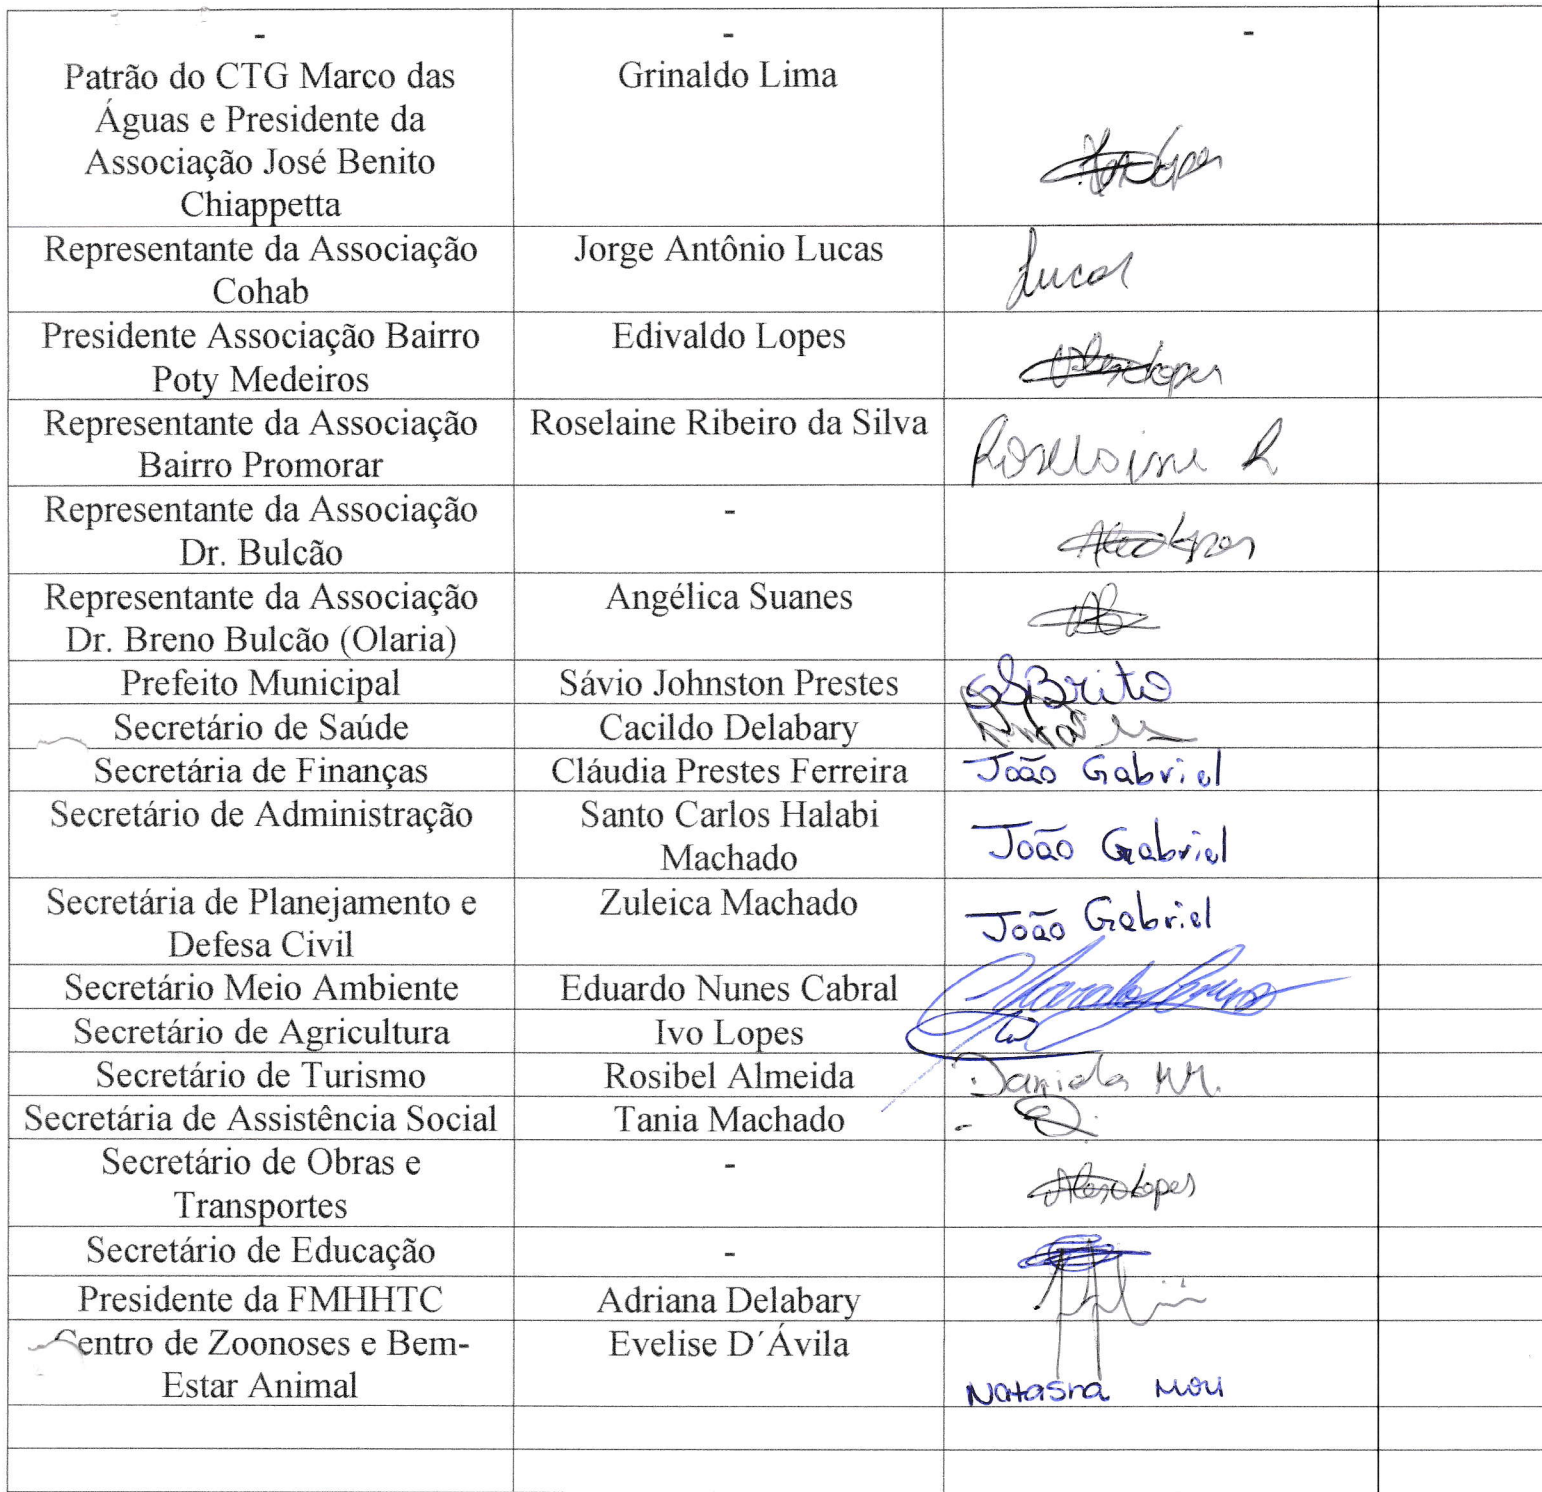 - - -
Patrão do CTG Marco das Grinaldo Lima
Águas e Presidente da
Associação José Benito
Chiappetta
Representante da Associação Jorge Antônio Lucas
Cohab Lucas
Presidente Associação Bairro Edivaldo Lopes
Poty Medeiros
Representante da Associação Roselaine Ribeiro da Silva
Bairro Promorar Roselaine R
Representante da Associação -
Dr. Bulcão
Representante da Associação Angélica Suanes
Dr. Breno Bulcão (Olaria)
Prefeito Municipal Sávio Johnston Prestes SBrito
Secretário de Saúde Cacildo Delabary
Secretária de Finanças Cláudia Prestes Ferreira João Gabriel
Secretário de Administração Santo Carlos Halabi
Machado João Gabriel
Secretária de Planejamento e Zuleica Machado João Gabriel
Defesa Civil
Secretário Meio Ambiente Eduardo Nunes Cabral
Secretário de Agricultura Ivo Lopes
Secretário de Turismo Rosibel Almeida Daniela M.
Secretária de Assistência Social Tania Machado
Secretário de Obras e -
Transportes
Secretário de Educação -
Presidente da FMHHTC Adriana Delabary
Centro de Zoonoses e Bem- Evelise D´Ávila
Estar Animal Natasha